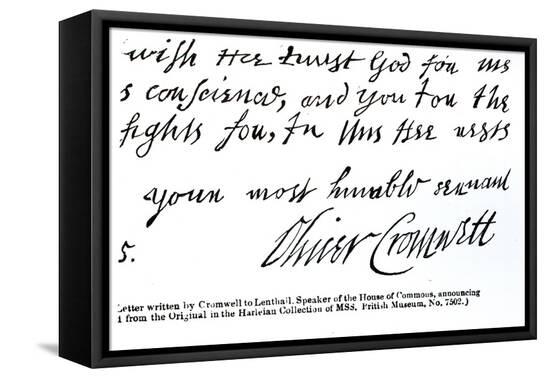 wish Hee trust God for the
s conscience, and you for the
fights for, In this Hee rests
your most humble servant
Oliver Cromwell
5.
Letter written by Cromwell to Lenthall, Speaker of the House of Commons, announcing
1 from the Original in the Harleian Collection of MSS. British Museum, No. 7502.)